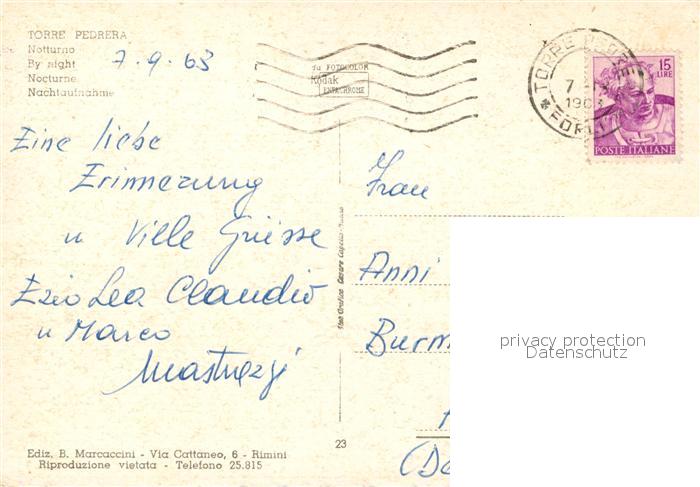 TORRE PEDRERA
Notturno
By night
Nocturne
Nachtaufnahme
7.9.63
da FOTOCOLOR
Kodak
EKTACHROME
TORRE PEDRERA
7
1963
FORLI
15
LIRE
POSTE ITALIANE
Eine liebe
Erinnerung
u Viele Grüsse
Ezio Lea Claudio
u Marco
Frau
Anni
Burm
privacy protection
Datenschutz
23
Ediz. B. Marcaccini - Via Cattaneo, 6 - Rimini
Riproduzione vietata - Telefono 25.815